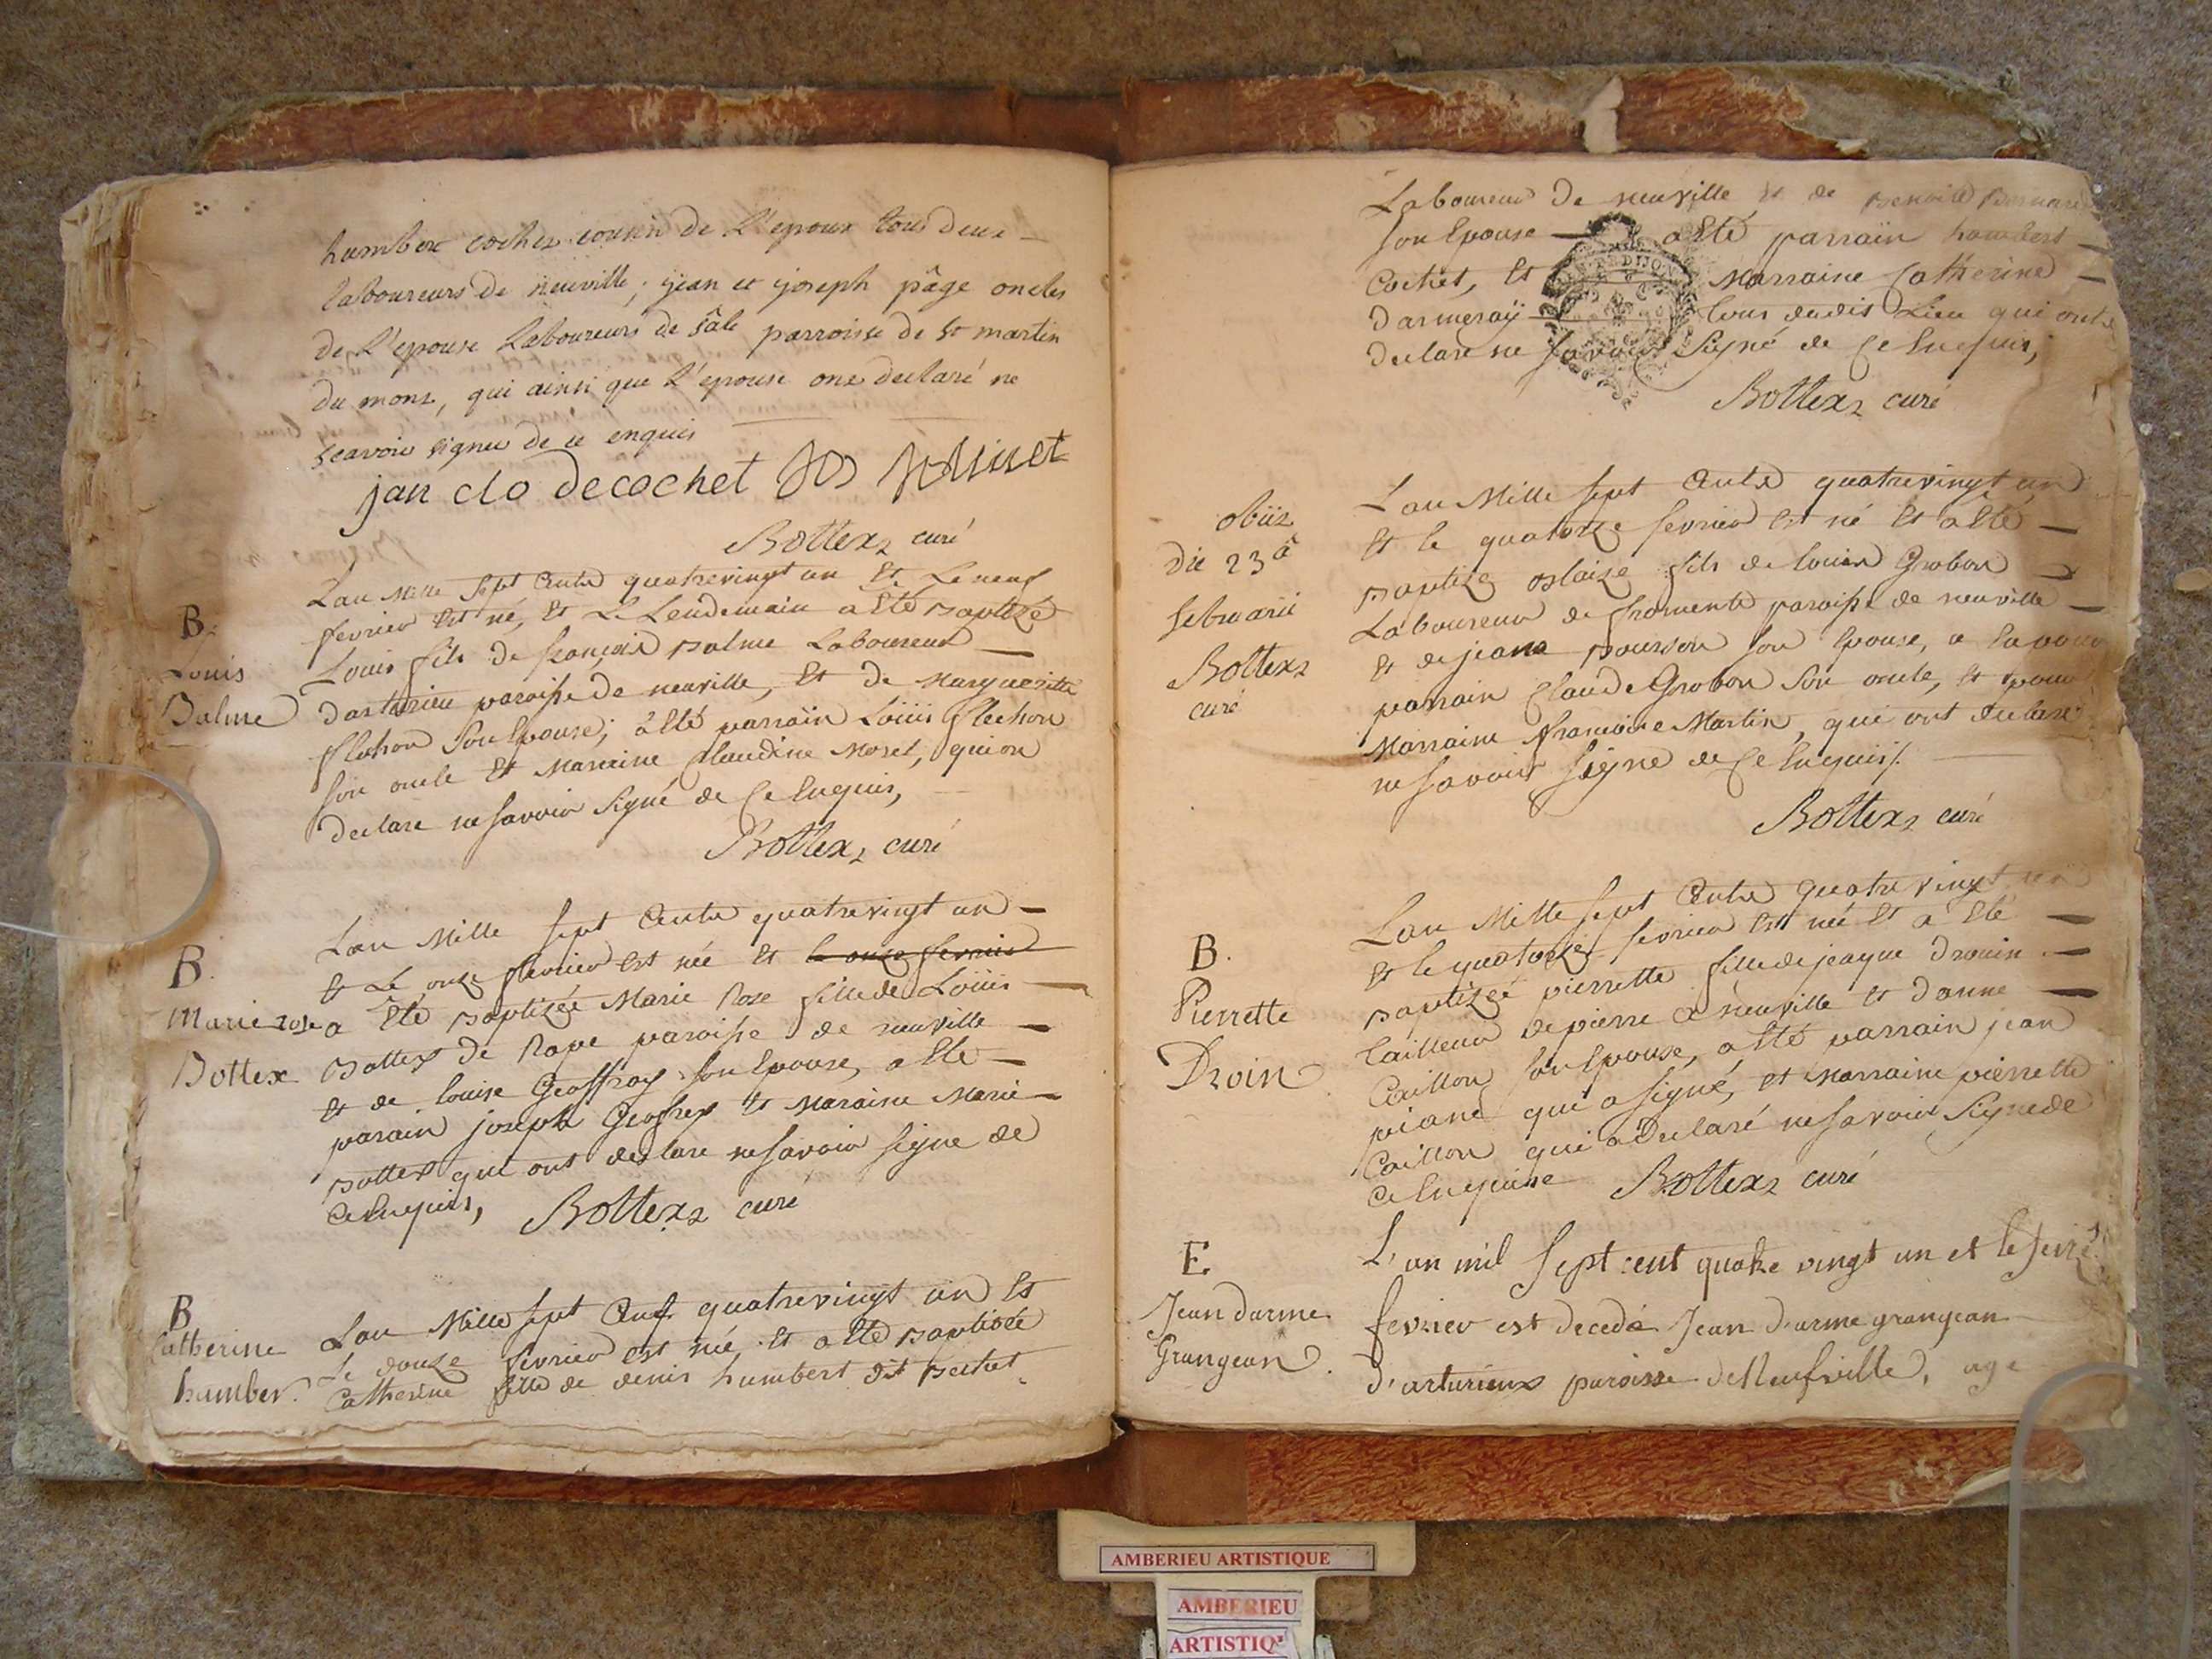 humbert cochet cousin de L'epoux tous deux
laboureurs de neuville; jean et joseph pâge oncles
de L'epouse Laboureurs de sâle parroisse de st martin
du mont, qui ainsi que L'epouse ont declaré ne
scavoir signer de ce enquis
jan clo decochet
Bottex, curé
Lan Mille Sept Cents quatrevingt un Et Le neuf
fevrier Est né, Et Le Lendemain a Eté Baptizé
Louis fils de françois Balme Laboureur
Darturieu paroisse de neuville, Et de Margueritte
flechon Son Epouse; a Eté parrain Loüis flechon
Son oncle Et Marraine Claudine Moret, qui on
declare ne Savoir Signé de Ce Enquis,
Bottex, curé
B.
Louis
Balme
Lan Mille Sept Cents quatrevingt un
Et Le onze fevrier Est née Et le onze fevrier
a Eté Baptizée Marie Rose fille de Loüis
Bottex de Rape paroisse de neuville
Et de louise Geoffray Son Epouse, a Eté
parain joseph Geoffrey Et Maraine Marie
Bottex qui ont declare ne Savoir Signe de
Ce Enquis, Bottex, curé
B.
Marie rose
Bottex
Lan Mille Sept Cent quatrevingt un Et
Le douze fevrier Est née Et a Eté Baptisée
Catherine fille de denis humbert dit
B
Catherine
humbert
Laboureur De neuville Et de Benoite
Son Epouse a Eté parrain humbert
Cochet, Et Marraine Catherine
Darmeraÿ tous dudit Lieu qui ont
declare ne Savoir Signé de Ce Enquis,
Bottex, curé
DIJON
obiit
die 23â
februarii
Bottex,
curé
Lan Mille Sept Cents quatrevingt un
Et le quatorze fevrier Est né Et a Eté
Baptize Blaize fils de louis Grobon
Laboureur de fromente paroisse de neuville
Et de jeane Bourson Son Epouse, a Eu pour
parrain Claude Grobon Son oncle, Et pour
Marraine francoise Martin, qui ont declaré
ne Savoir Signe de Ce Enquis.
Bottex, curé
B.
Pierrette
Droin
Lan Mille Sept Cents Quatrevingt un
Et le quatorze fevrier Est née Et a Eté
Baptizée pierrette fille de jaque Drouin
tailleur de pierre a neuville Et Danne
Caillon Son Epouse, a Eté parrain jean
piane qui a Signé, Et Marraine pierrette
Caillon qui a declaré ne Savoir Signe de
Ce Enquise Bottex, curé
E
Jean darme
Grangean
L'an mil Sept cent quatre vingt un et le seize
fevrier est decedé Jean d'arme grangean
d'arturieux paroisse de Neufville, age
AMBERIEU ARTISTIQUE
AMBERIEU
ARTISTIQ